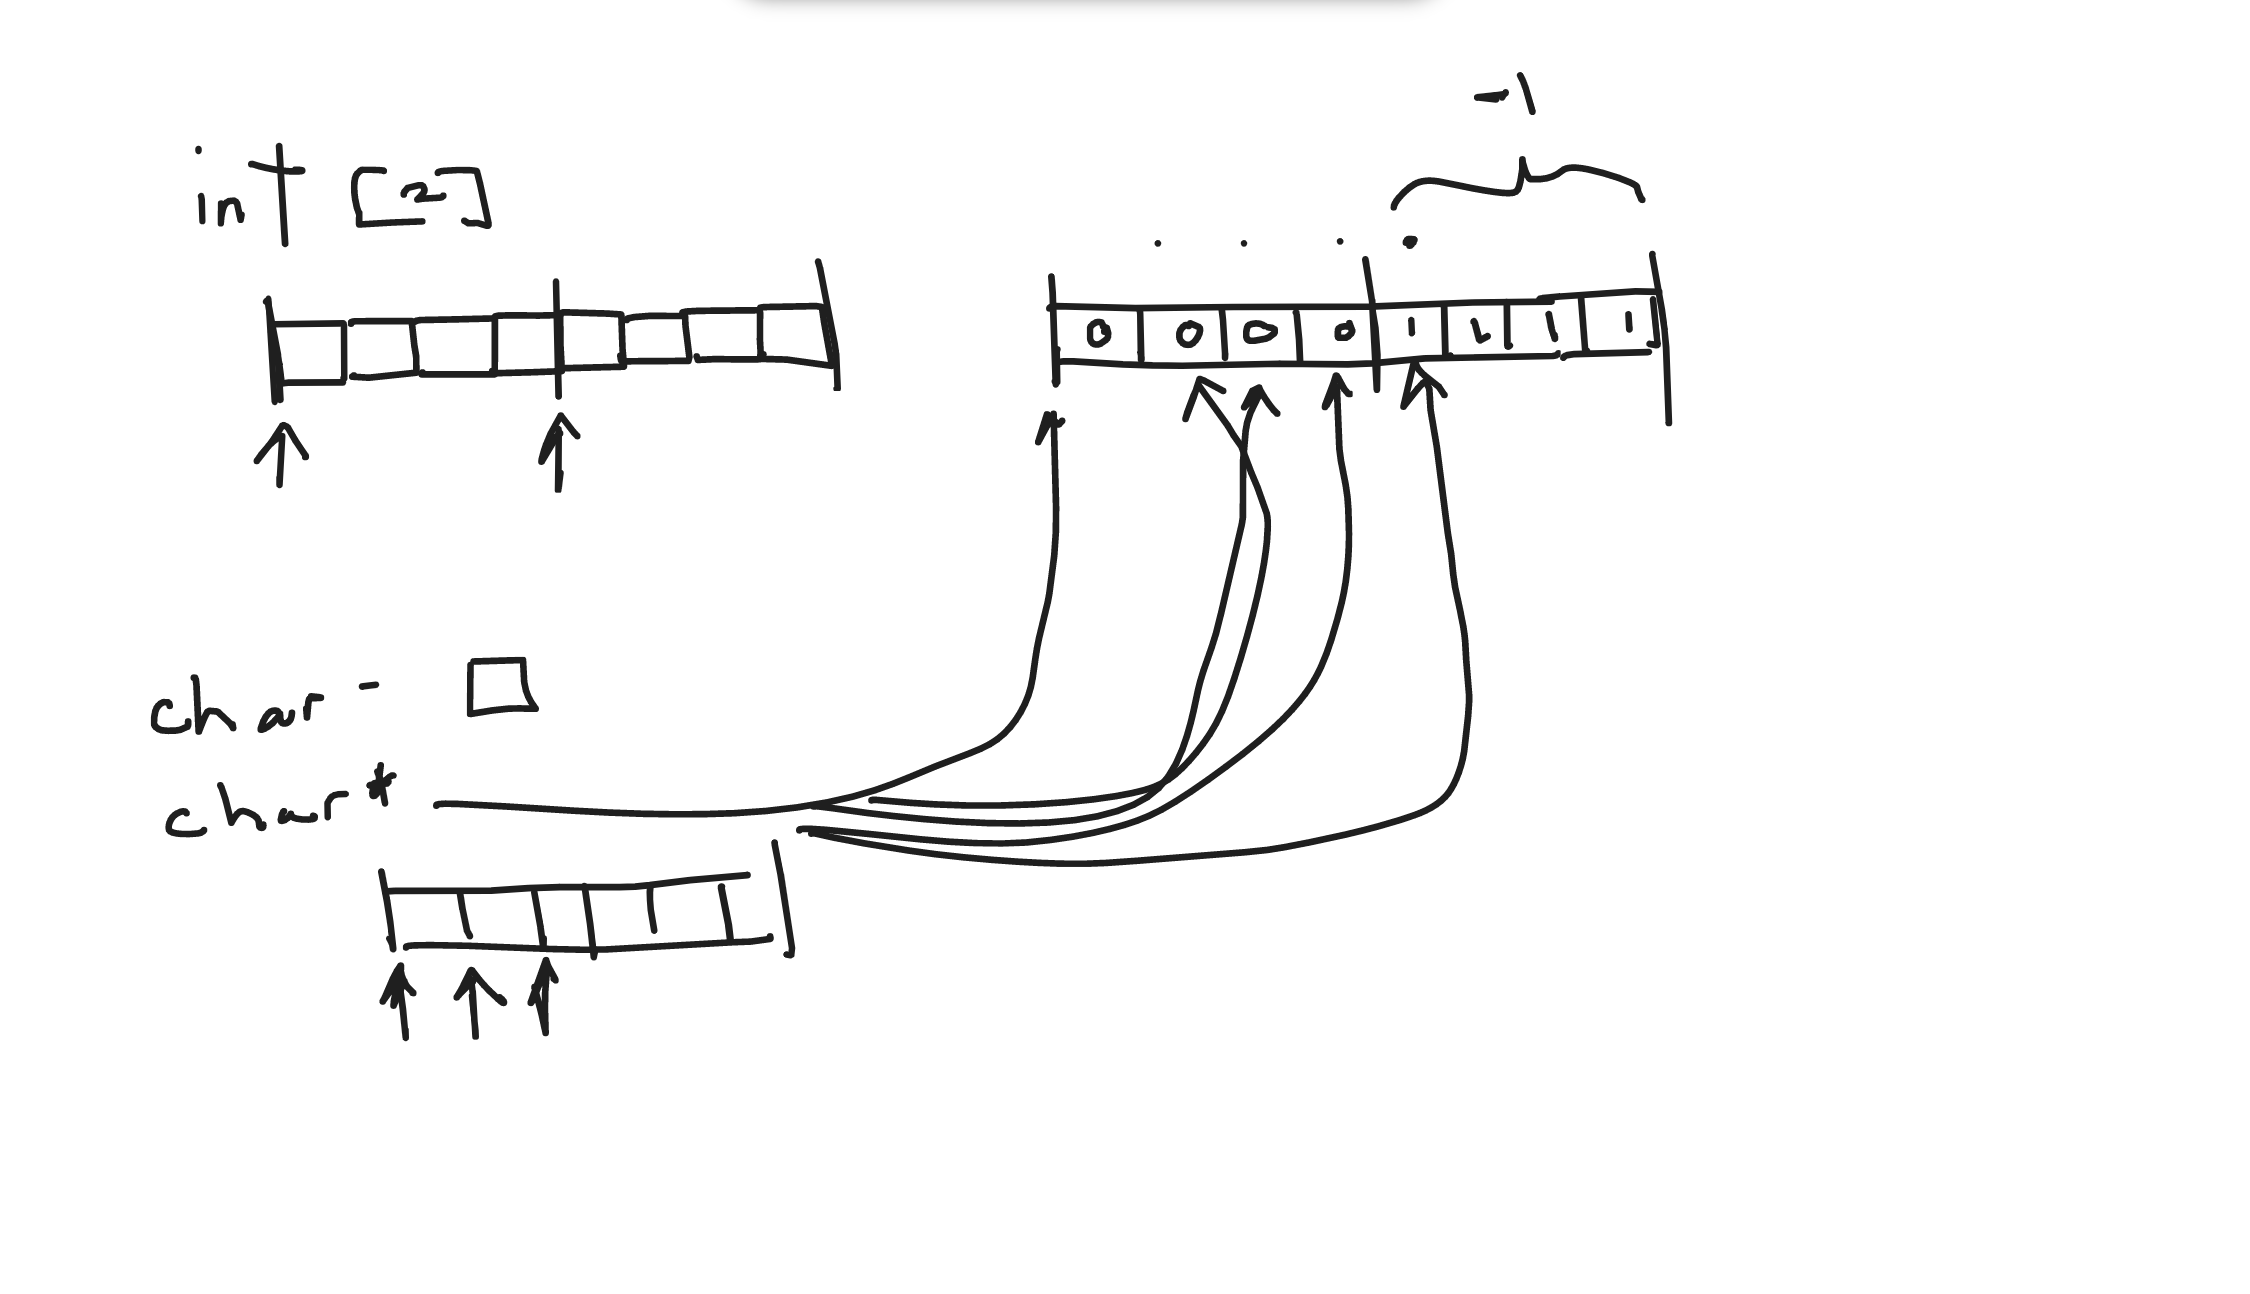 -1
int [2]
0 0 0 0 1 1 1 1
char -
char*